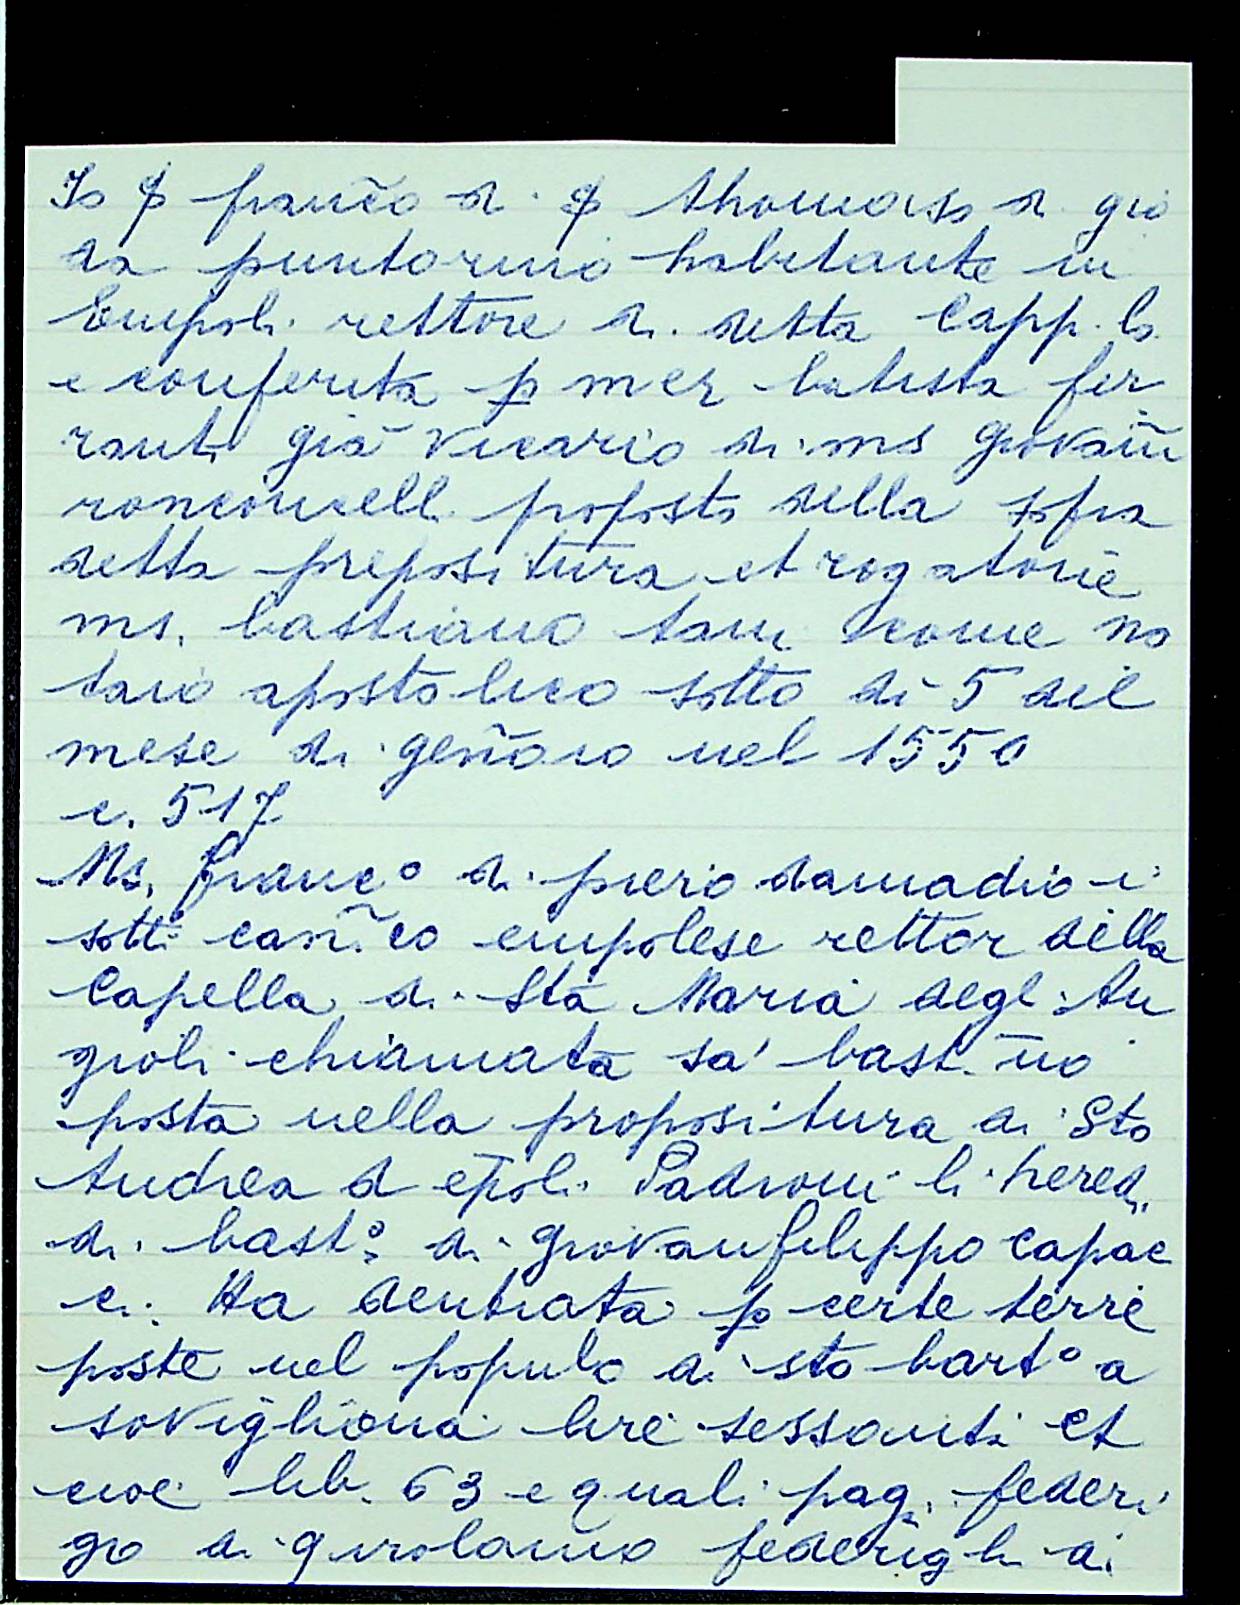 Io p franc̃o di p thomaso di gio
da puntormo habitante in
Empoli rettore di detta Capp. la
e conferita p mer batista fer
ranti già vicario di ms giovañi
roncionelli proposto della sopra
detta prepositura et rogatone
ms. bastiano tani come no
taio apostolico sotto dì 5 del
mese di geñaio nel 1550
c. 517
Ms. franc° di piero damadio i
sotti cañ.co empolese rettor della
Capella di Sta Maria degli An
gioli chiamata sa' bast. no
posta nella propositura di Sto
Andrea d ep̃oli Padroni li heredi
di bast° di giovanfilippo capac
ci. Ha dentrata p certe terre
poste nel populo di sto bart° a
sovigliana lire sessanti et
cioe lib. 63 e quali pag. federi
go di girolamo federighi di